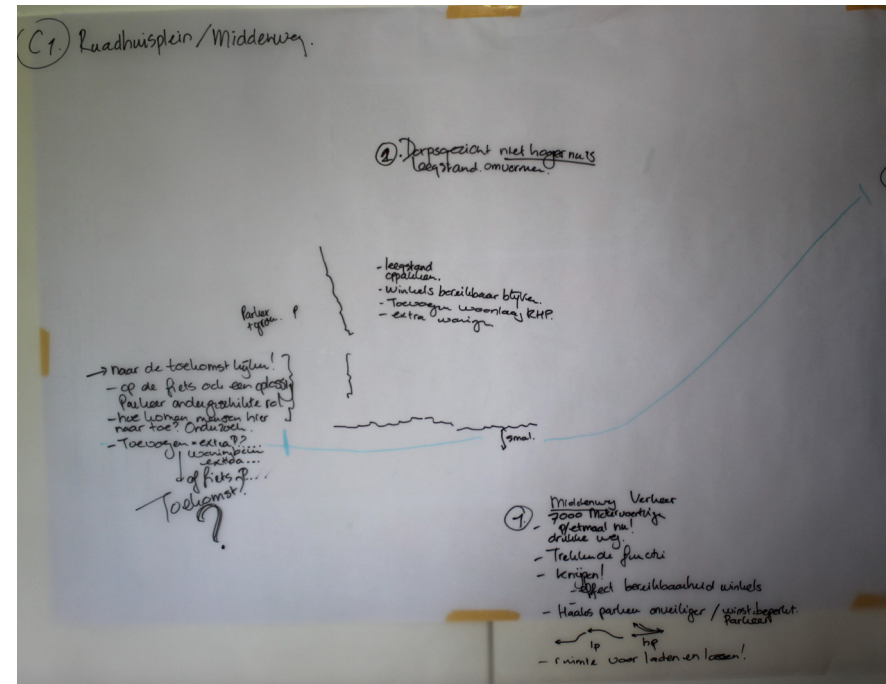 C1. Raadhuisplein / Middenweg.
2. Dorpsgezicht niet hoger nu is
leegstand omvormen.
- leegstand
oppakken.
- winkels bereikbaar blijven.
- Toevoegen woonlaag RHP.
- extra woningen
Parkeer P
+ groen
→ naar de toekomst kijken!
- op de fiets ook een oplossing
Parkeer ondergeschikte rol
- hoe komen mensen hier
naar toe? Onderzoek.
- Toevoegen = extra P? ...
extra ...
of fiets P...
Toekomst?
?
smal.
1. Middenweg Verkeer
7000 Motorvoertuigen
- etmaal nu!
drukke weg.
- Trekkende functie
- knijpen!
→ effect bereikbaarheid winkels
- Haaks parkeren onveiliger / winst beperkt.
Parkeer
lp hp
- ruimte voor laden en lossen!